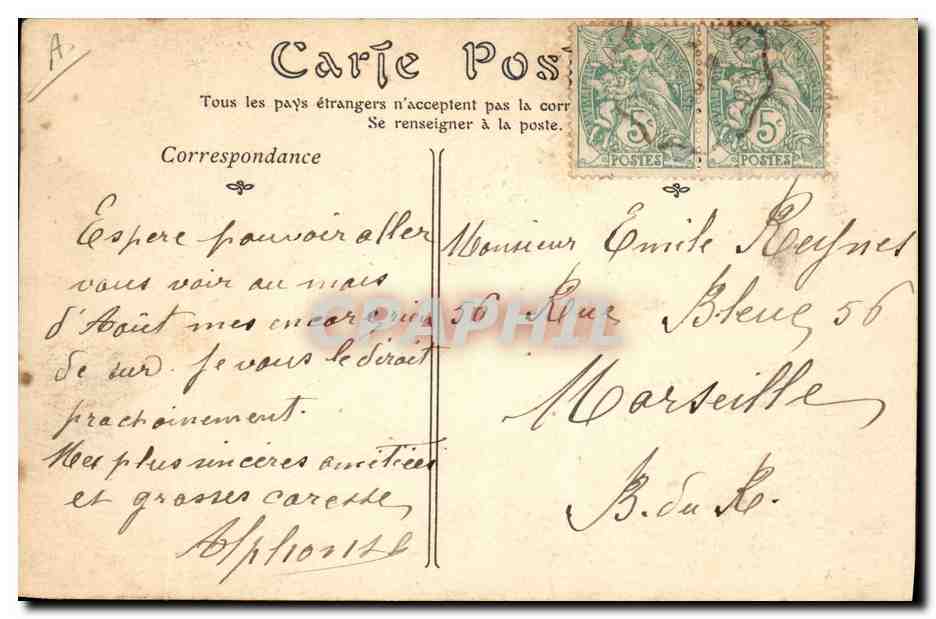 A
Carte Pos
Tous les pays étrangers n'acceptent pas la corr
Se renseigner à la poste.
5c
POSTES
5c
POSTES
Correspondance
Espere pouvoir aller
vous voir au mois
d'Août mes encor rien
de sur. Je vous le dirait
prochainement.
Mes plus sincères amitiées
et grosses caresse
Alphonse
Monsieur Emile Reynes
56 Rue Bleue 56
Marseille
B. du R.
CPAPHIL